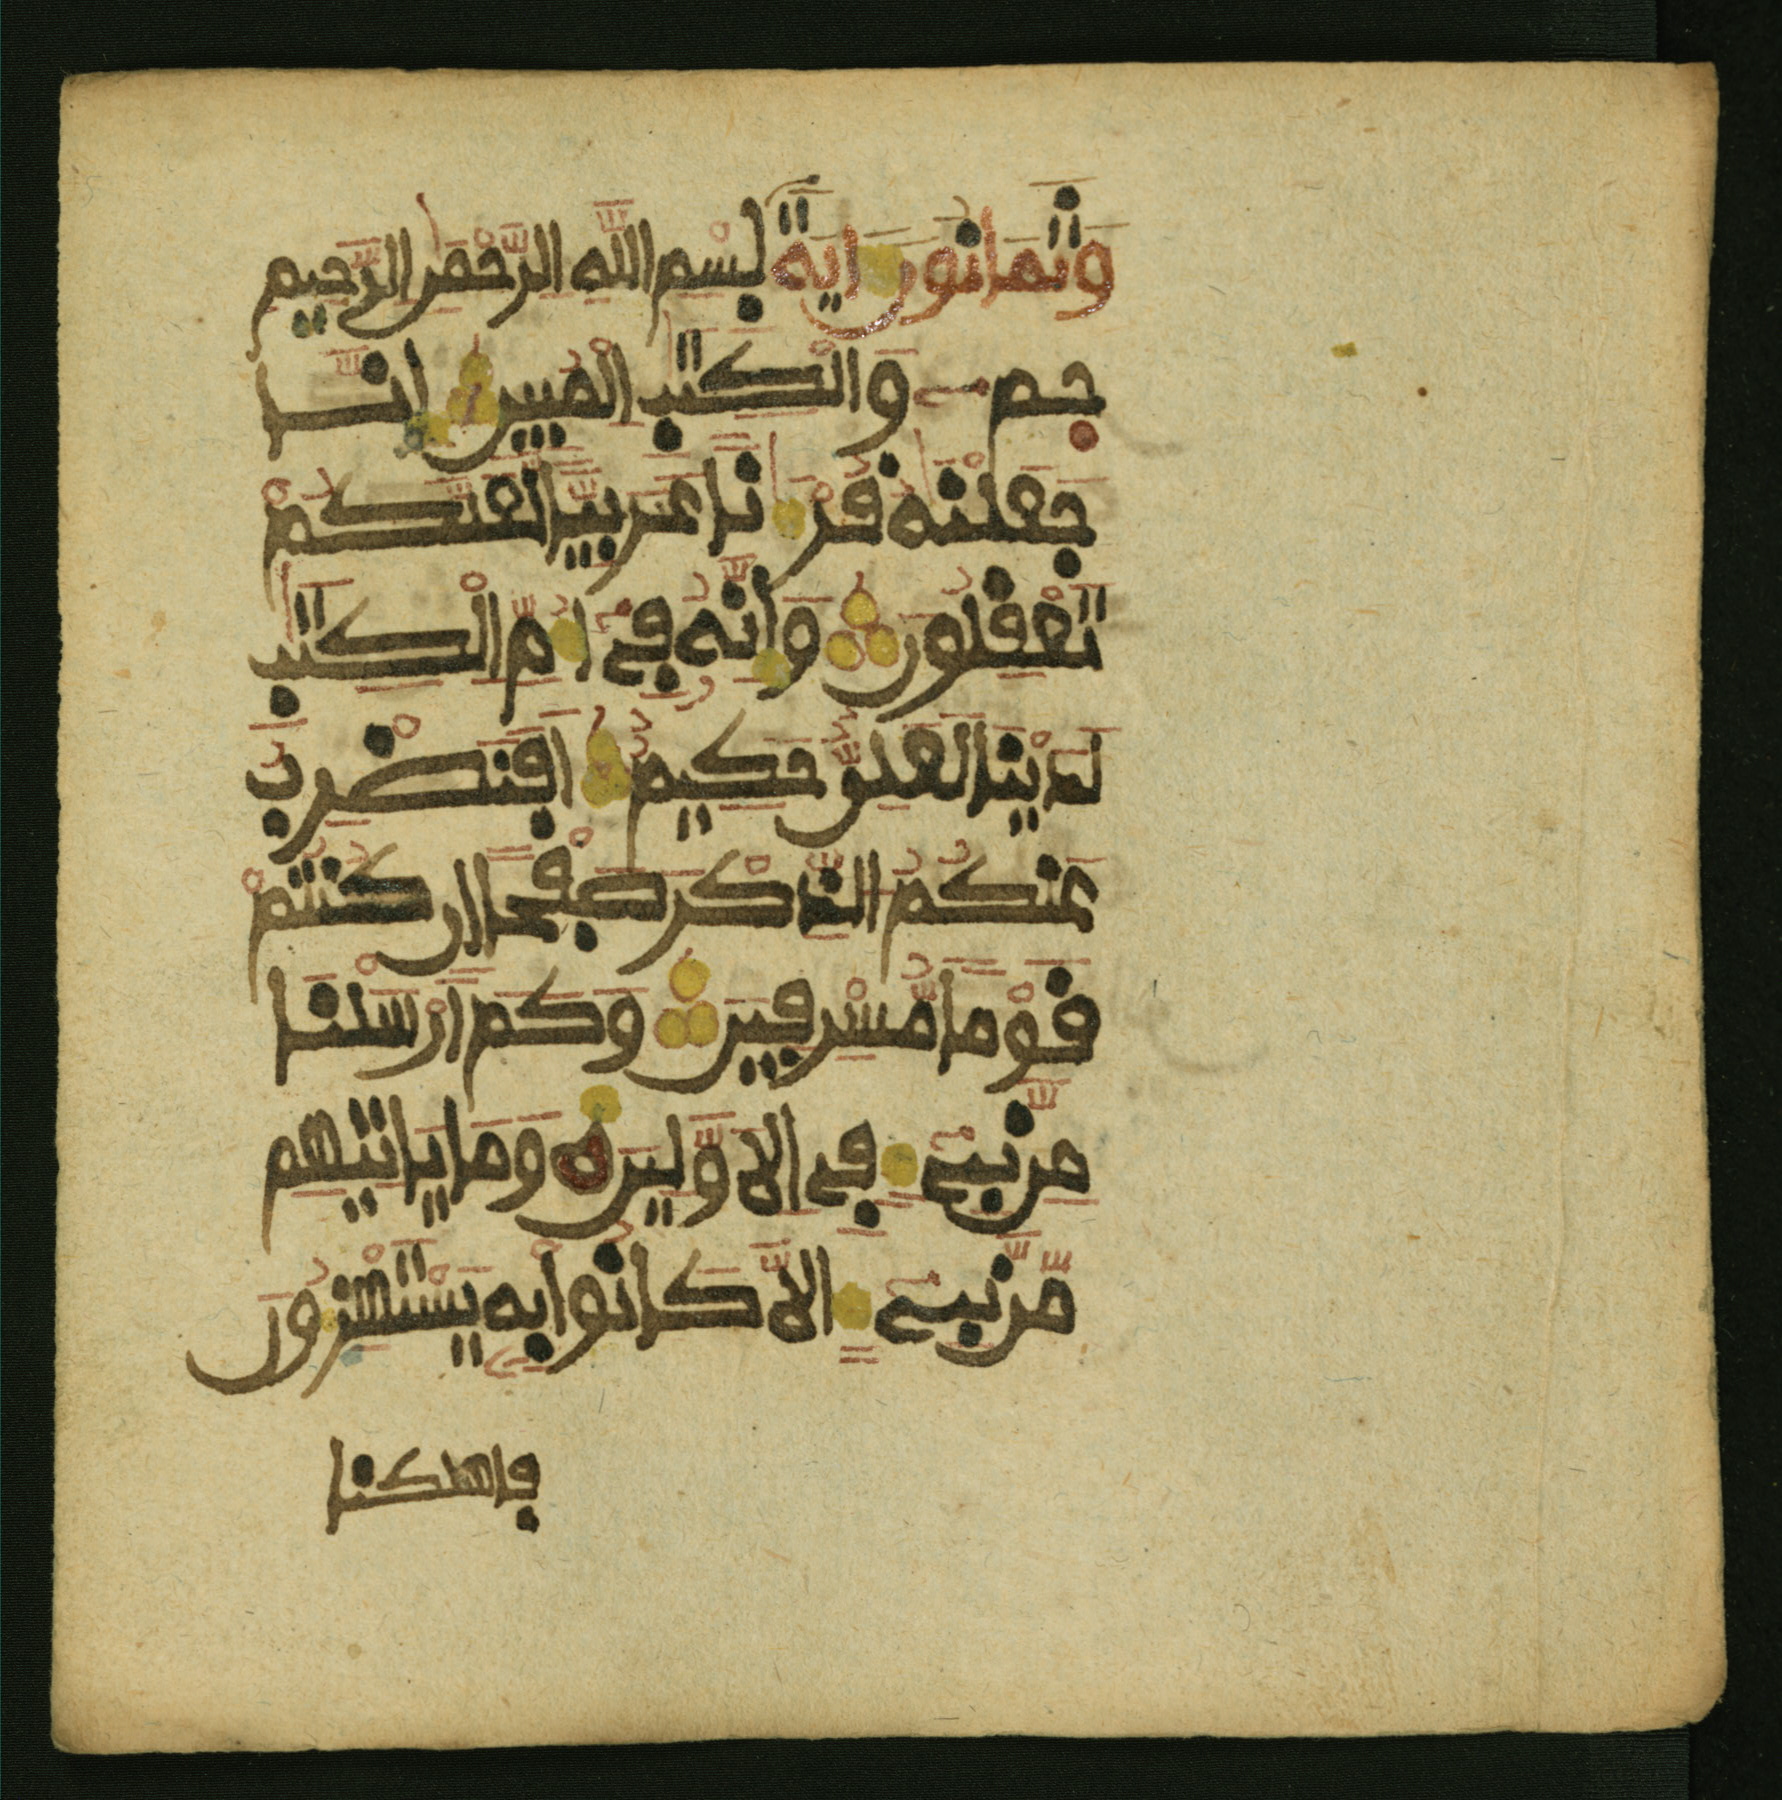 وَثَمَانُونَ ايَةً بِسْمِ اللَّهِ الرَّحْمَٰنِ الرَّحِيمِ
حم وَالْكِتَٰبِ الْمُبِينِ انَّا
جَعَلْنَٰهُ قُرْءَٰنًا عَرَبِيّا لَّعَلَّكُمْ
تَعْقِلُونَ وَإِنَّهُ فِے أُمِّ الْكِتَٰبِ
لَدَيْنَا لَعَلِيٌّ حَكِيمٌ افَنَضْرِبُ
عَنكُمُ الذِّكْرَ صَفْحًا ان كُنتُمْ
قَوْمًا مُّسْرِفِينَ وَكَمَ ارْسَلْنَا
مِن نَّبِےءٍ فِے الاَوَّلِينَ وَمَا يَاتِيهِم
مِّن نَّبِےءٍ الاَّ كَانُوا بِهِ يَسْتَهْزِءُونَ
فاهلكنا